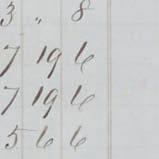 3 " 8
7 19 6
7 19 6
5 6 6